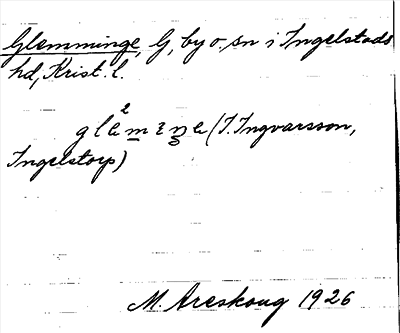 Glemminge, G, by o. sn i Ingelstads
hd, Krist. l.
(I. Ingvarsson,
Ingelstorp)
M. Areskoug 1926